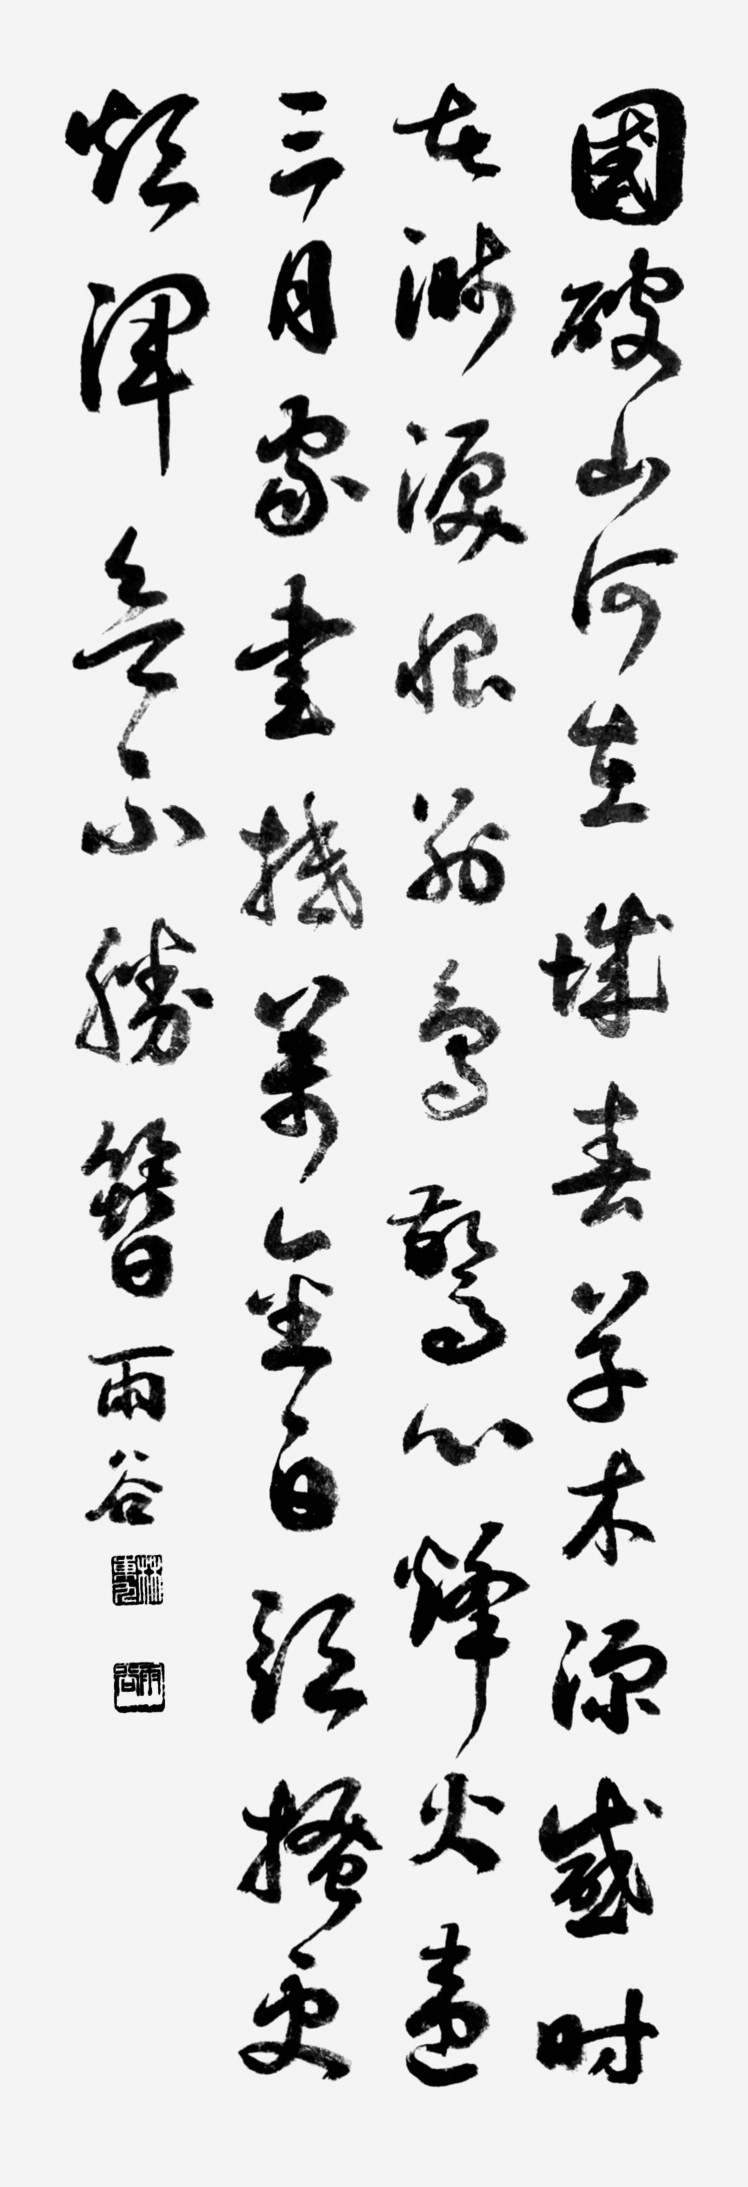 國破山河在城春草木深感時
花濺淚恨別鳥驚心烽火連
三月家書抵萬金白頭搔更
短渾欲不勝簪雨谷
雨谷